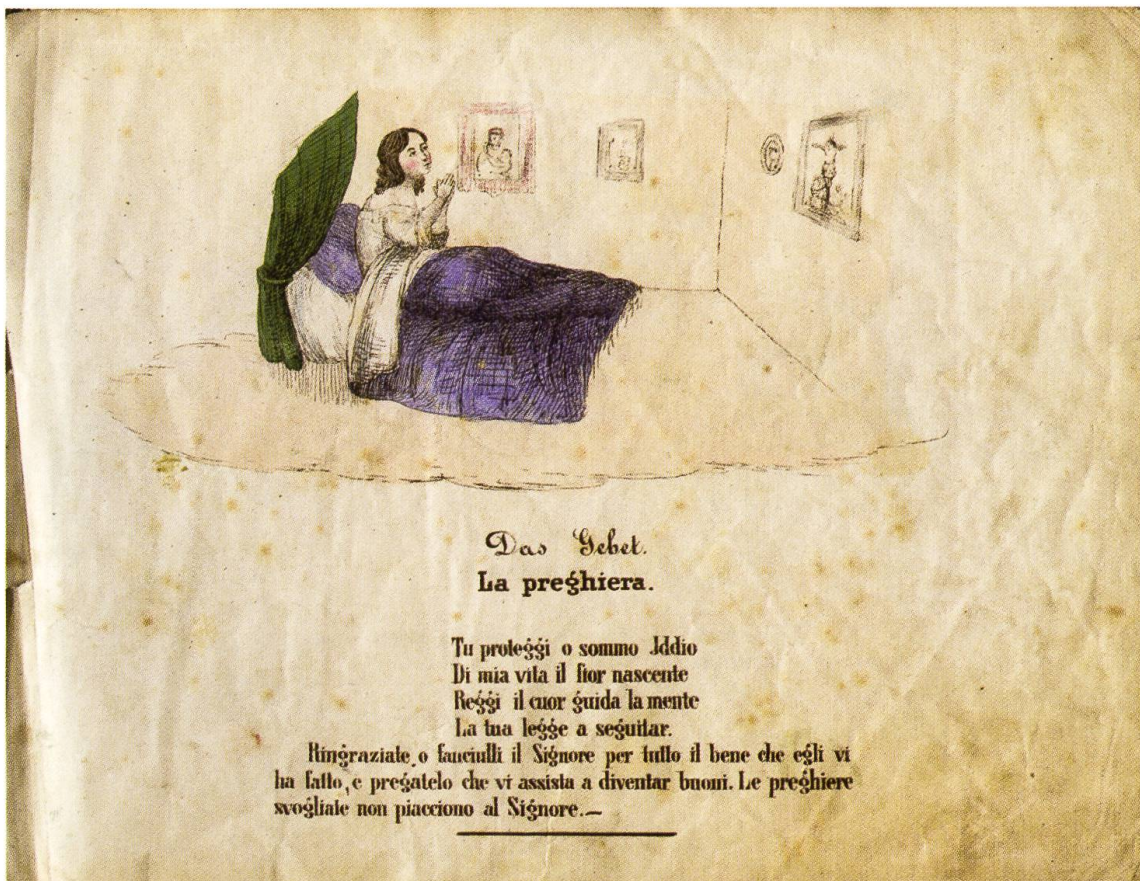 Das Gebet.
La preghiera.
Tu proteggi o sommo Iddio
Di mia vita il fior nascente
Reggi il cuor guida la mente
La tua legge a seguitar.
Ringraziate, o fanciulli il Signore per tutto il bene che egli vi
ha fatto, e pregatelo che vi assista a diventar buoni. Le preghiere
svogliate non piacciono al Signore.—